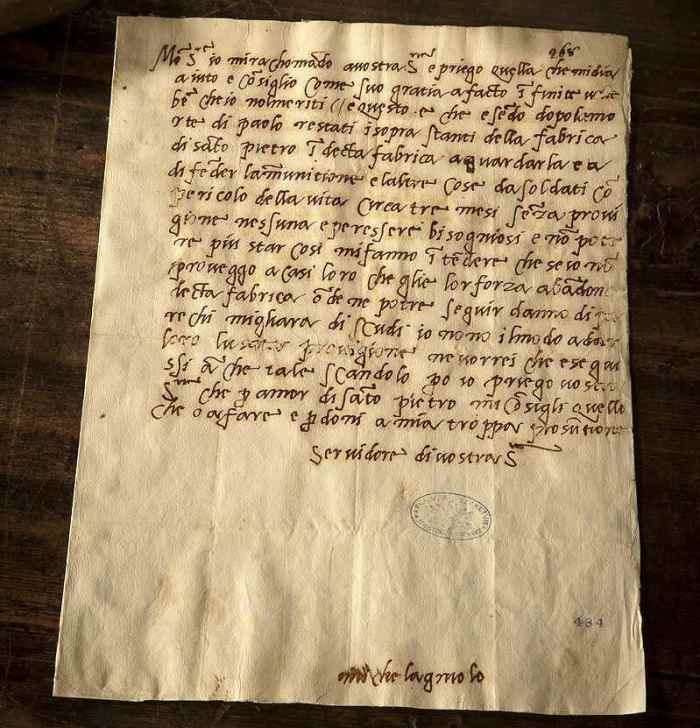 268
Mo͂ S.re io mi rachomado a vostra S.rie e priego quella che mi dia
aiuto e co͂siglio come suo gratia a facto i͂ finite
be͂ che io nol meriti e questo e che esse͂do dopo la mo
rte di paolo restati i sopra stanti della fabrica
di sa͂to pietro i͂ decta fabrica a guardarla e a
di fe͂der la munitione e laltre cose da soldati co͂
pericolo della vita circa tre mesi se͂za provi
gione nessuna e per essere bisogniosi e no͂ pote
re piu star cosi mi fanno i͂te͂dere che se io no͂
proveggo a casi loro che gli e lor forza aba͂don
decta fabrica o͂de ne potre seguir danno di
rechi migliara di scudi io no no il modo a dar
loro provigione ne vorrei che esegui
ssi a͂che tale scandolo po io priego vostra
S.rie che p amor di sa͂to pietro mi co͂sigli quello
che o a fare e p doni a mia troppa prosu͂tione
Servidore di vostra S.
484
michelagniolo